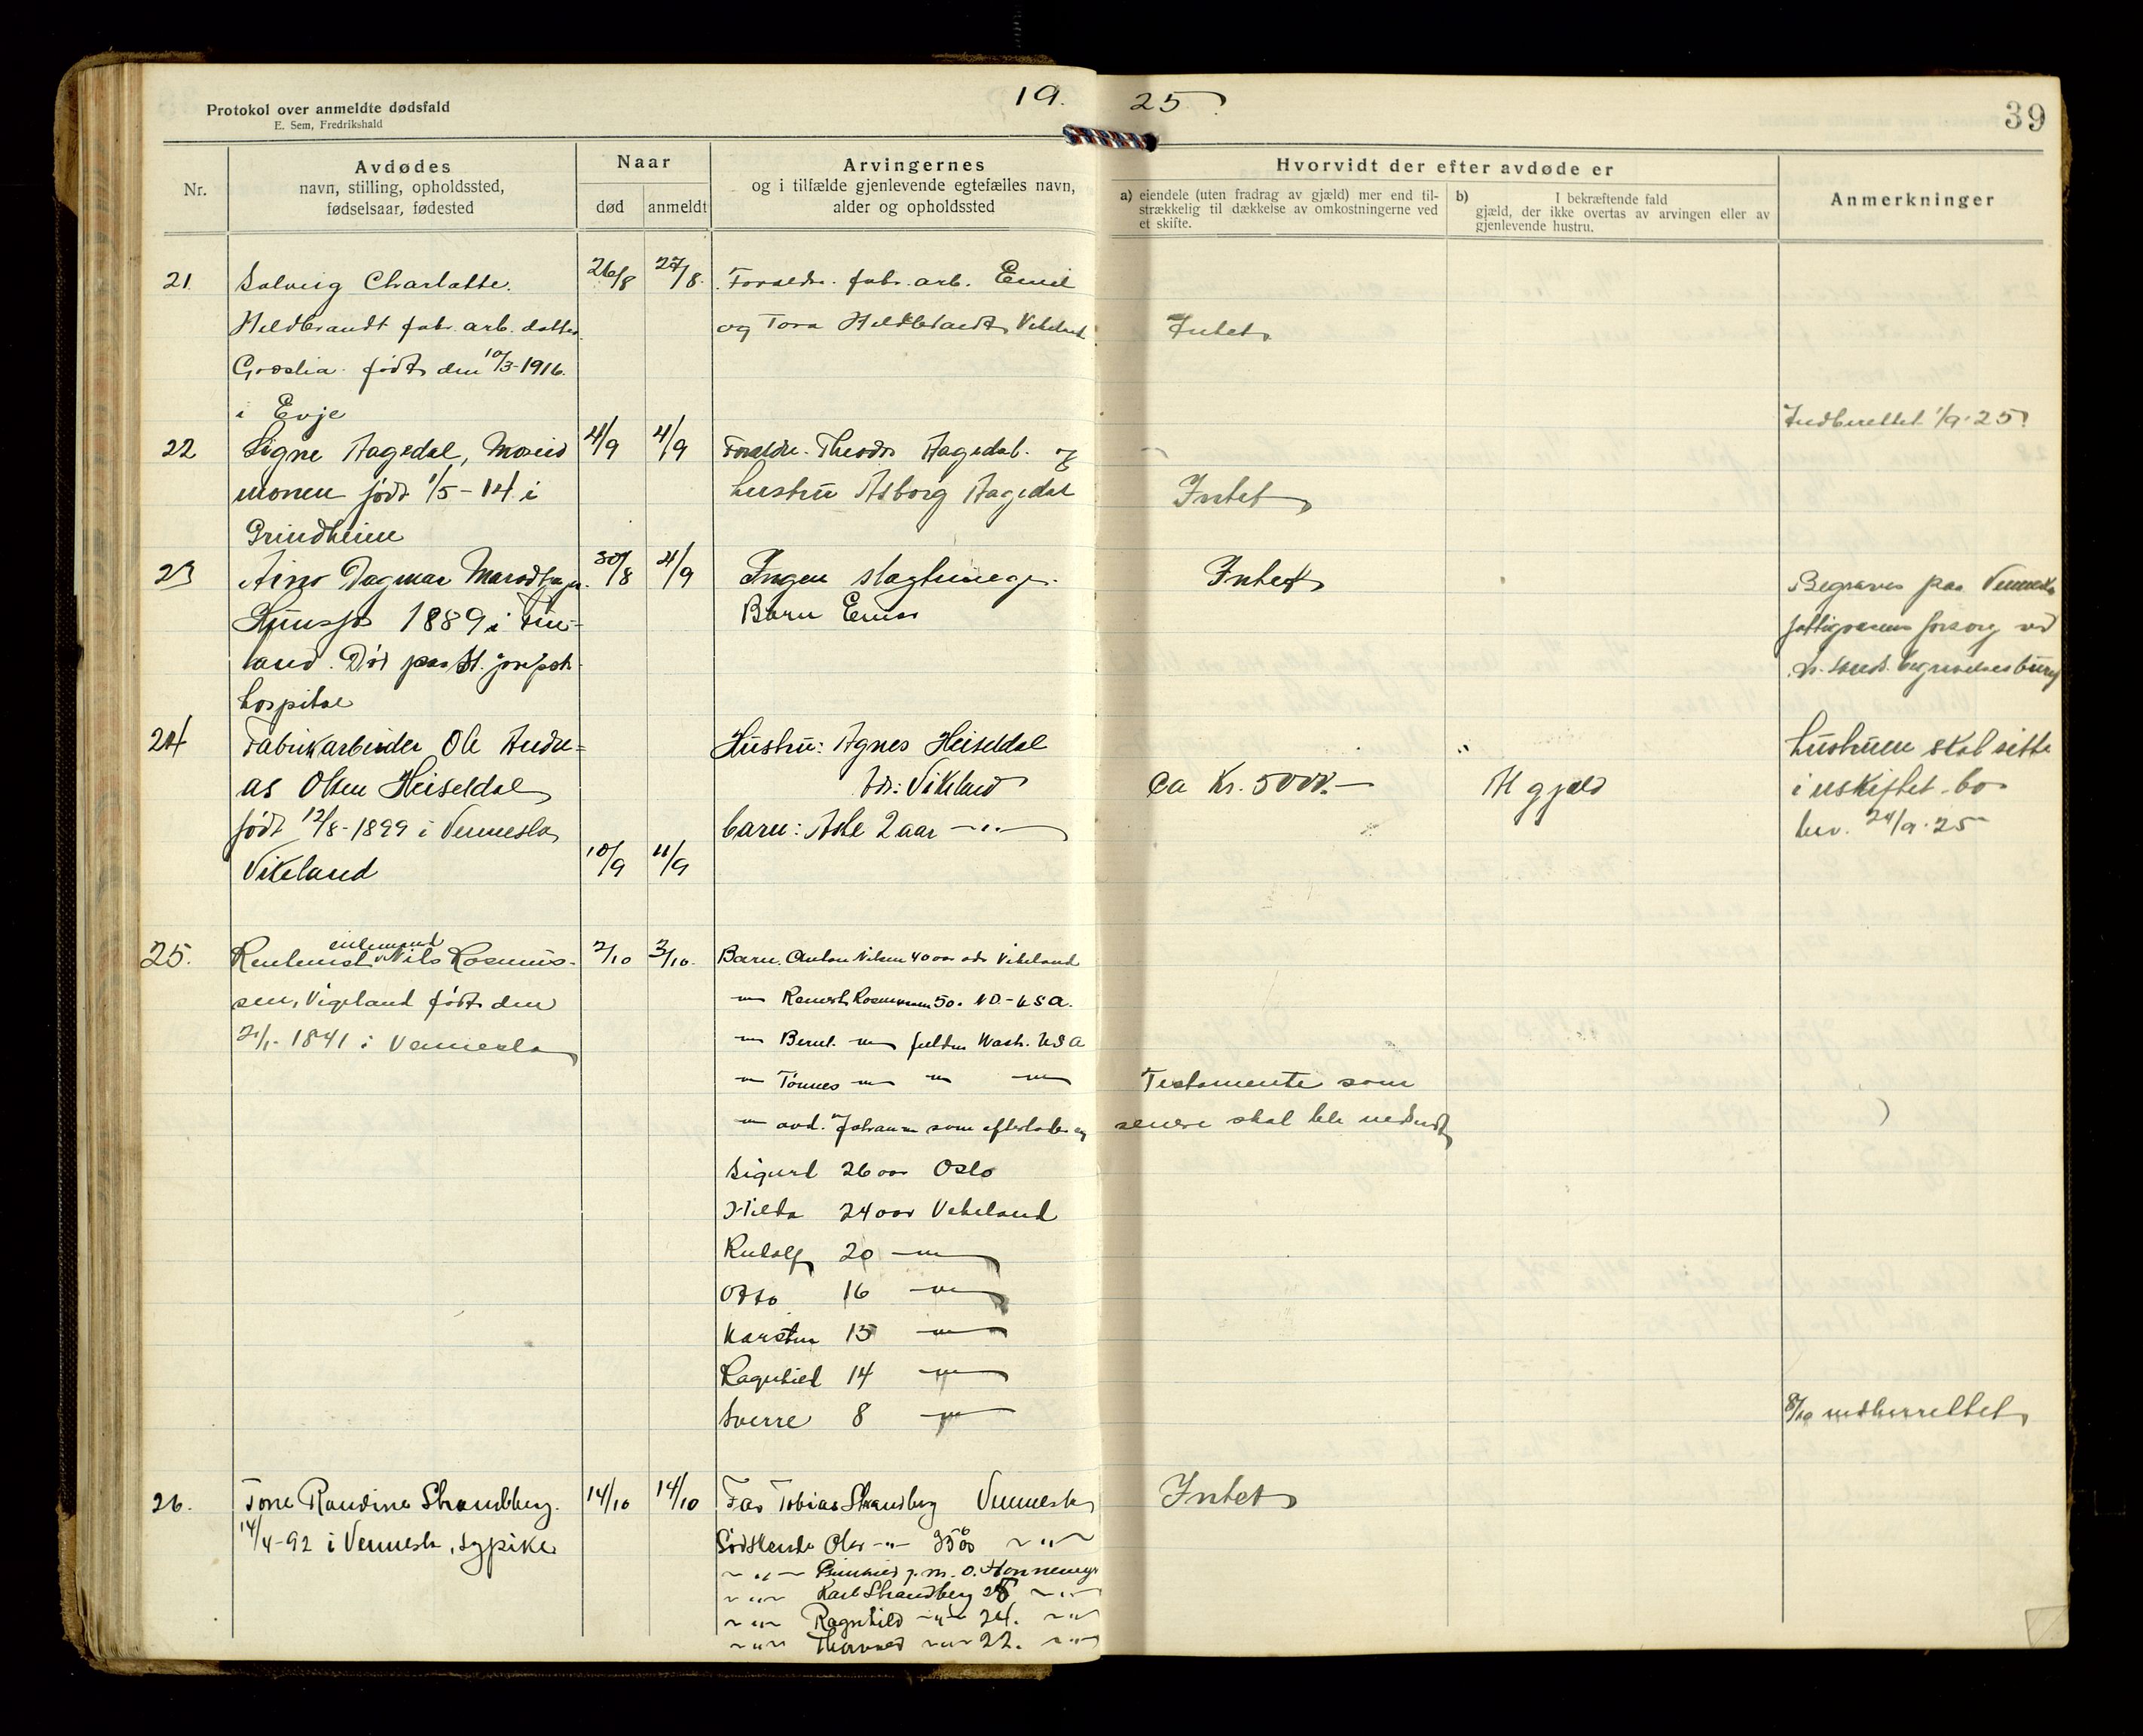 Protokol over anmeldte dødsfald
E. Sem, Fredrikshald
19. 25
39
Nr.
Avdødes
navn, stilling, opholdssted,
fødselsaar, fødested
Naar
død
anmeldt
Arvingernes
og i tilfælde gjenlevende egtefælles navn,
alder og opholdssted
Hvorvidt der efter avdøde er
a) eiendele (uten fradrag av gjæld) mer end til-
strækkelig til dækkelse av omkostningerne ved
et skifte.
b) I bekræftende fald
gjæld, der ikke overtas av arvingen eller av
gjenlevende hustru.
Anmerkninger
21.
Solveig Charlotte.
Hildbrandt fabr. arb. datter
født den 10/3-1916.
i Evje
26/8
27/8.
Forældre. fabr. arb. Emil
og Tora Hildbrandt Vikeland
Intet
Indberettet 1/9-25
22
Signe Aagedal,
monen født 1/5-14 i
Grindheim
4/9
4/9
Forældre. Theodor Aagedal. og
hustru Asborg Aagedal
Intet
23
Aino Dagmar
1889 i Fin-
land. Død paa St. josephs
hospital
30/8
4/9
Ingen slagtninge.
Barn
Intet
Begraves paa Vennesla
fattigvæsens forsorg ved
begravelsesbury
24
Fabrikarbeider Ole Andre-
as Olsen Heiseldal
født 12/8-1899 i Vennesla
Vikeland
10/9
11/9
Hustru: Agnes Heiseldal
Adr: Vikeland
barn: Asle 2 aar -"-
ca Kr. 5000.-
"
gjæld
hustruen skal sitte
i uskiftet bo
bev. 24/9-25
25.
enkemand
Rentenist Nils Rasmus-
sen, Vigeland født den
21/1-1841 i Vennesla
2/10
3/10.
Barn. Anton Nilsen 40 aar adr Vikeland
-"- Rasmussen 50. N.D.-USA.
-"- Bernt -"- Wash. USA
-"- Tønnes -"- -"- -"-
-"- avd. Johan som efterlader sig
Sigurd 26 aar Oslo
Hilda 24 aar Vikeland
Rudolf 20 -"-
Otto 16 -"-
Karsten 15 -"-
Ragnhild 14 -"-
Sverre 8 -"-
Testamente som
senere skal bli indsendt
8/10 indberettet
26.
Tone Randine Strandberg.
14/4-92 i Vennesla, sypike
14/10
14/10
Far Tobias Strandberg Vennesla
Sødskende Olav -"- 35 -"-
-"- g. m. O. Honnemyr
-"- Karl Strandberg 28 -"-
-"- Ragnhild -"- 24. -"-
-"- Thorvald -"- 22. -"-
Intet